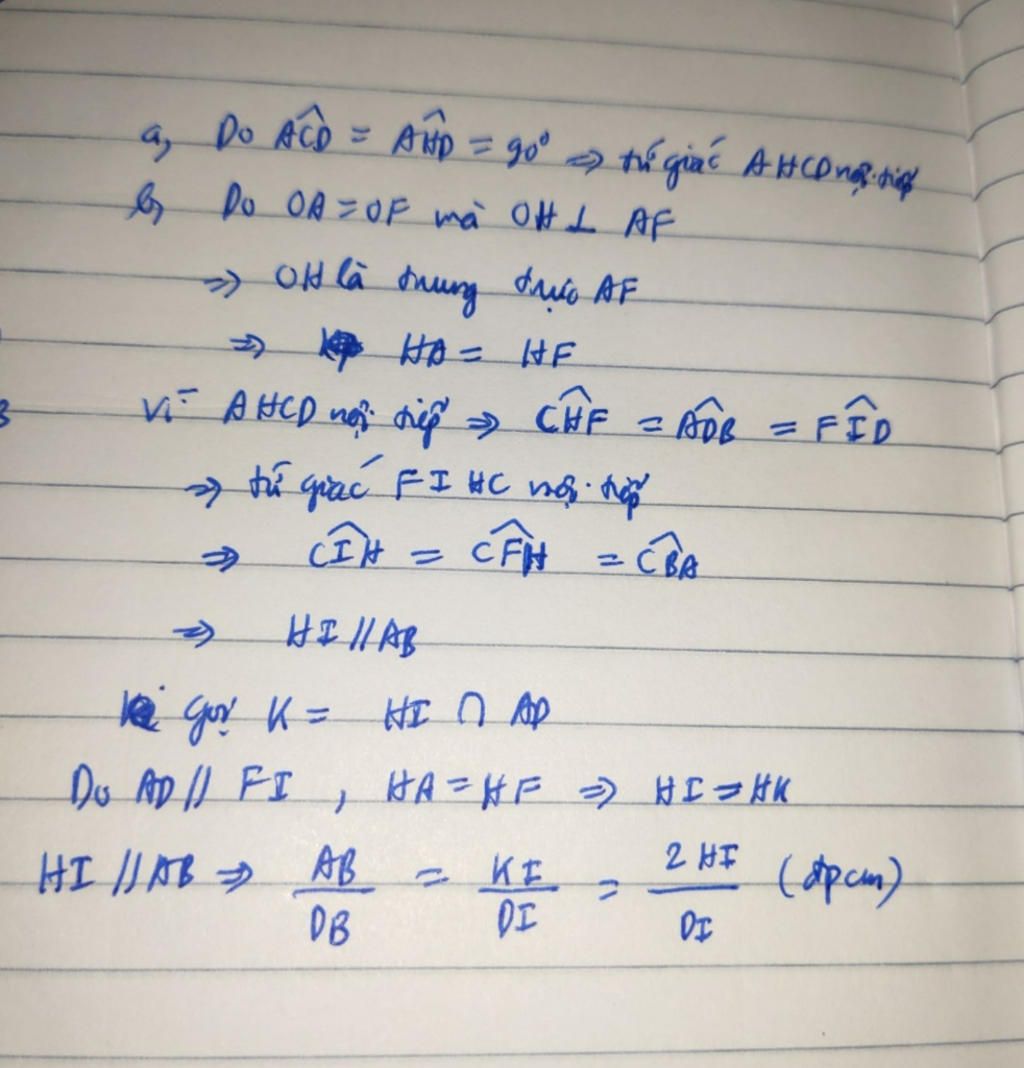 a, Do \widehat{ACD} = \widehat{AHD} = 90° => tứ giác AHCD nội tiếp
b, Do OA = OF mà OH ⊥ AF
=> OH là trung trực AF
=> HA = HF
Vì AHCD nội tiếp => \widehat{CHF} = \widehat{ADB} = \widehat{FID}
=> tứ giác FIHC nội tiếp
=> \widehat{CIH} = \widehat{CFH} = \widehat{CBA}
=> HI // AB
Gọi K = HI ∩ AD
Do AD // FI , HA = HF => HI = HK
HI // AB => \frac{AB}{DB} = \frac{KI}{DI} = \frac{2HI}{DI} (đpcm)